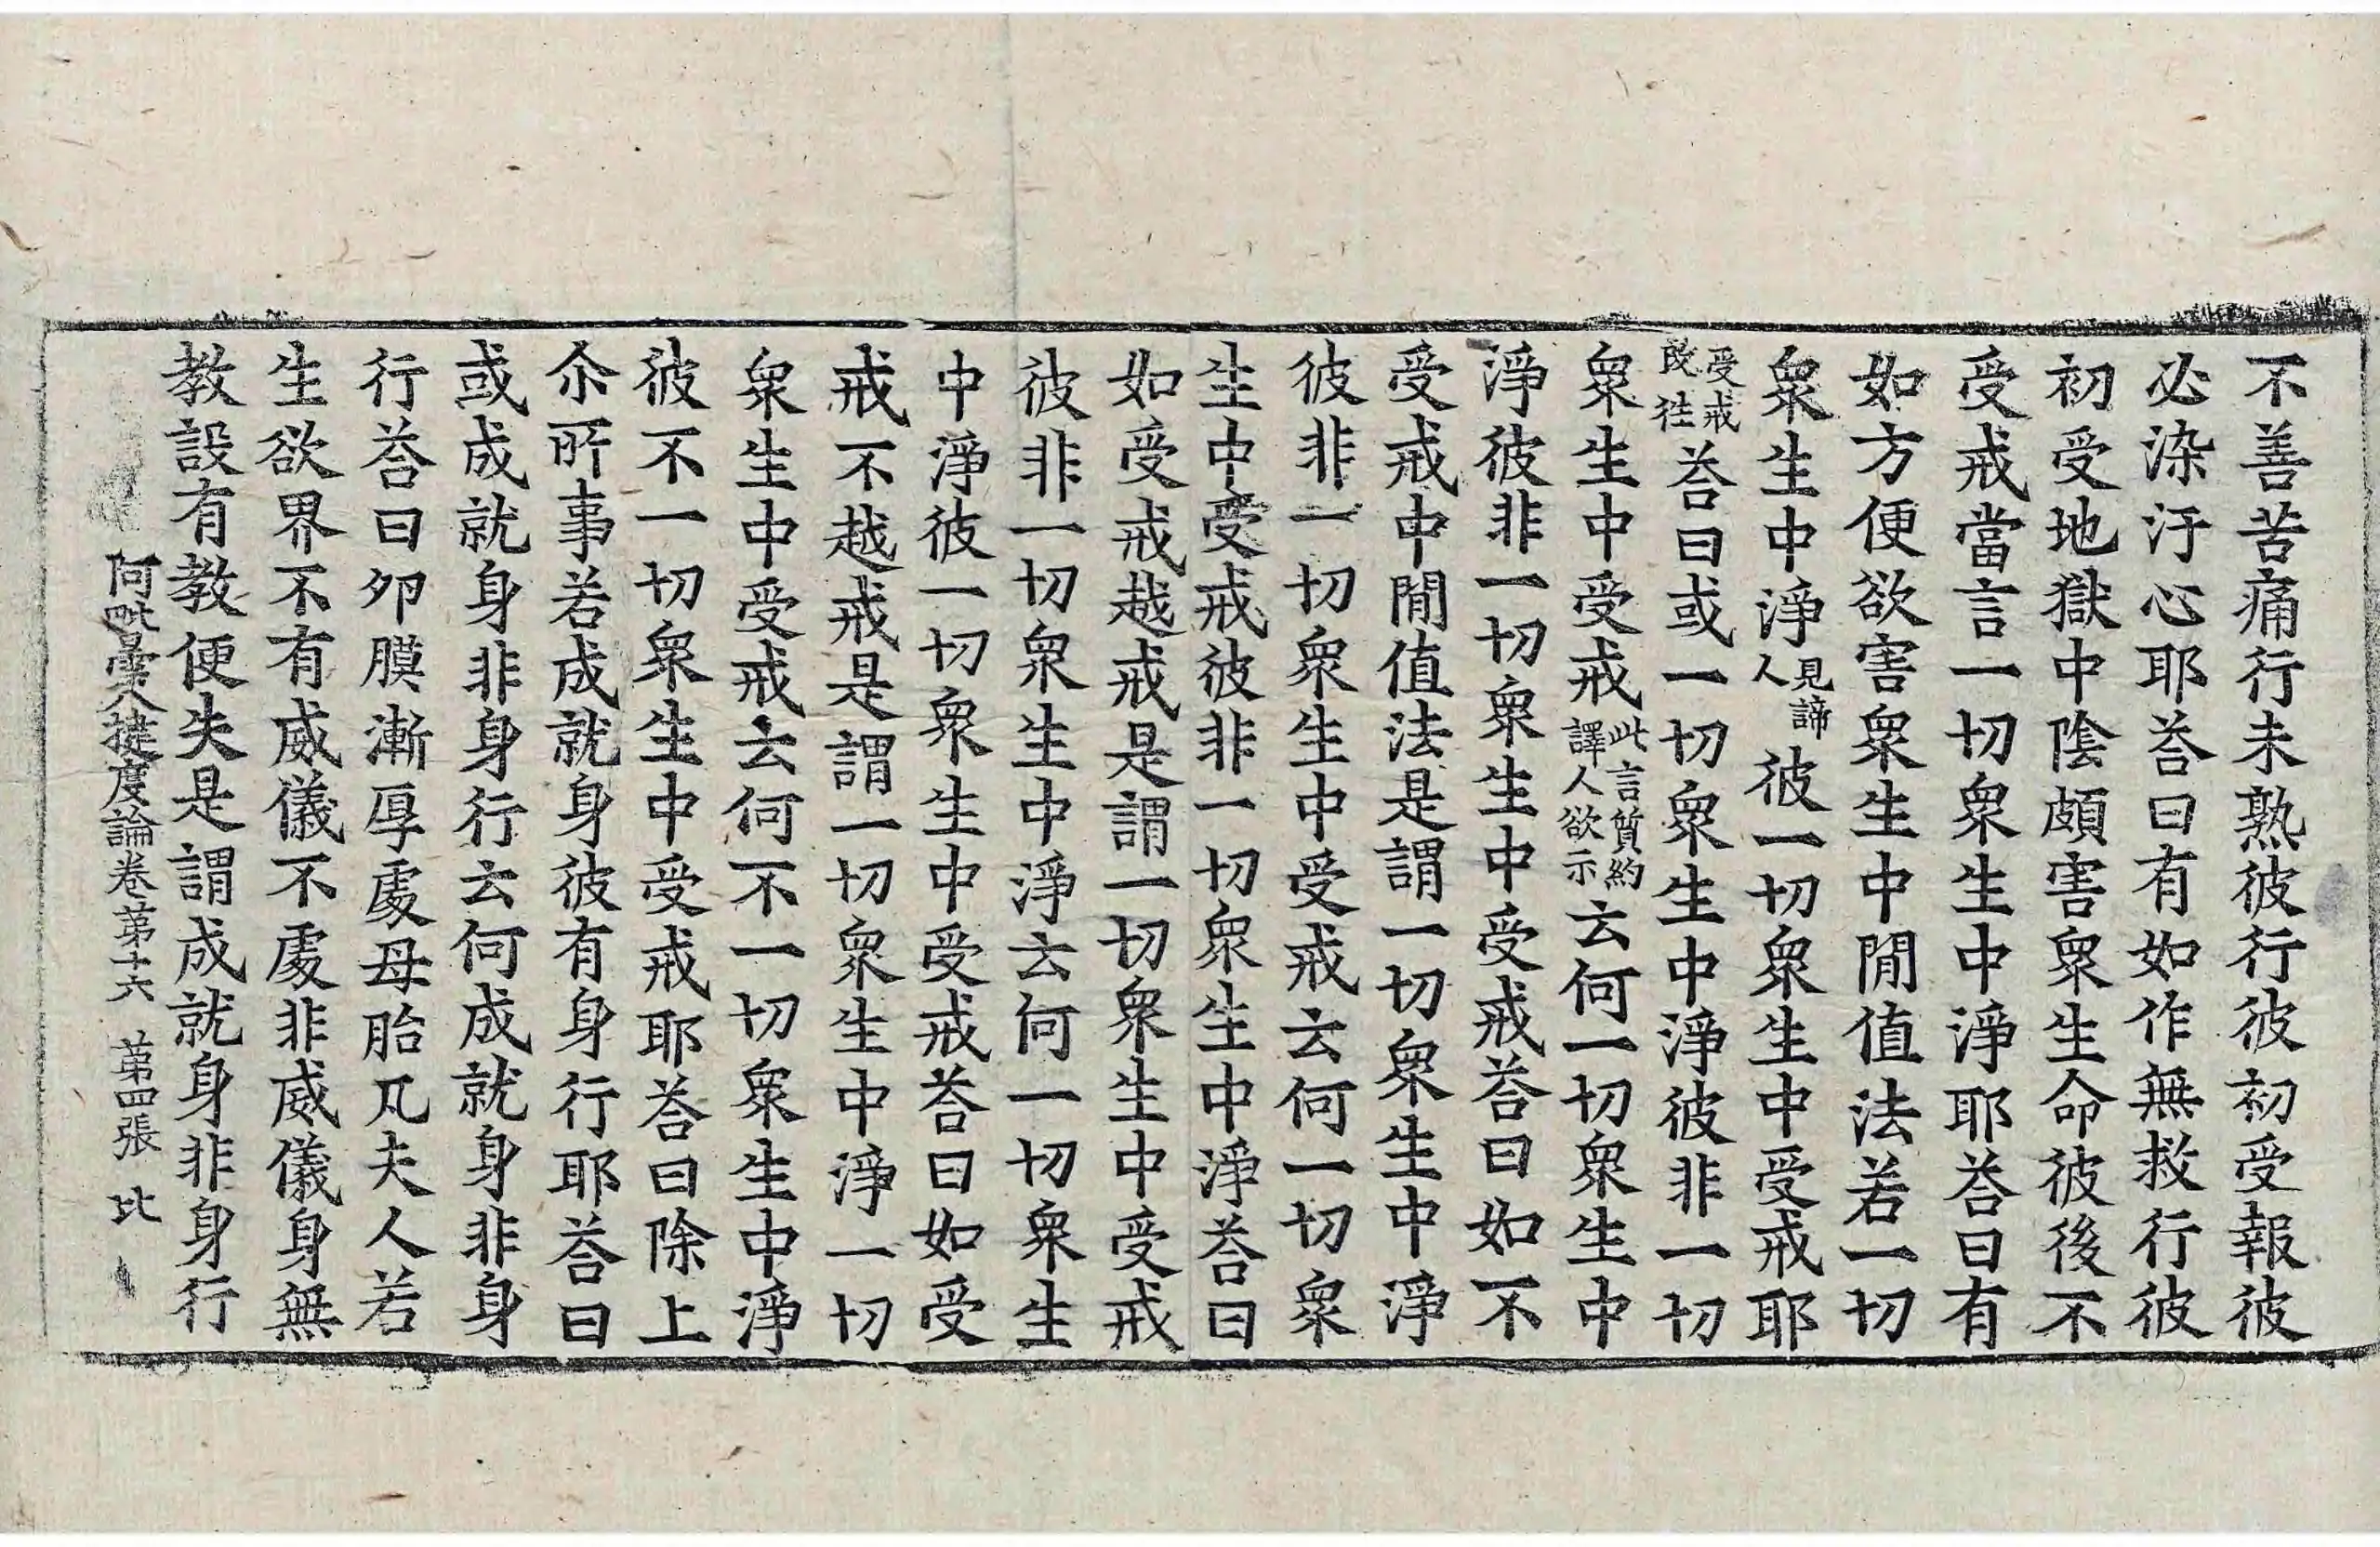 不善苦痛行未熟彼行彼初受報彼
必染汙心耶荅曰有如作無救行彼
初受地獄中陰頗害衆生命彼後不
受戒當言一切衆生中淨耶荅曰有
如方便欲害衆生中閒值法若一切
衆生中淨見諦人彼一切衆生中受戒耶
受戒改徃荅曰或一切衆生中淨彼非一切
衆生中受戒此言質約譯人欲示云何一切衆生中
淨彼非一切衆生中受戒荅曰如不
受戒中閒值法是謂一切衆生中淨
彼非一切衆生中受戒云何一切衆
生中受戒彼非一切衆生中淨荅曰
如受戒越戒是謂一切衆生中受戒
彼非一切衆生中淨云何一切衆生
中淨彼一切衆生中受戒荅曰如受
戒不越戒是謂一切衆生中淨一切
衆生中受戒云何不一切衆生中淨
彼不一切衆生中受戒耶荅曰除上
尒所事若成就身彼有身行耶荅曰
或成就身非身行云何成就身非身
行荅曰卵膜漸厚處母胎凡夫人若
生欲界不有威儀不處非威儀身無
教設有教便失是謂成就身非身行
阿毗曇八揵度論卷第十六 第四張 比